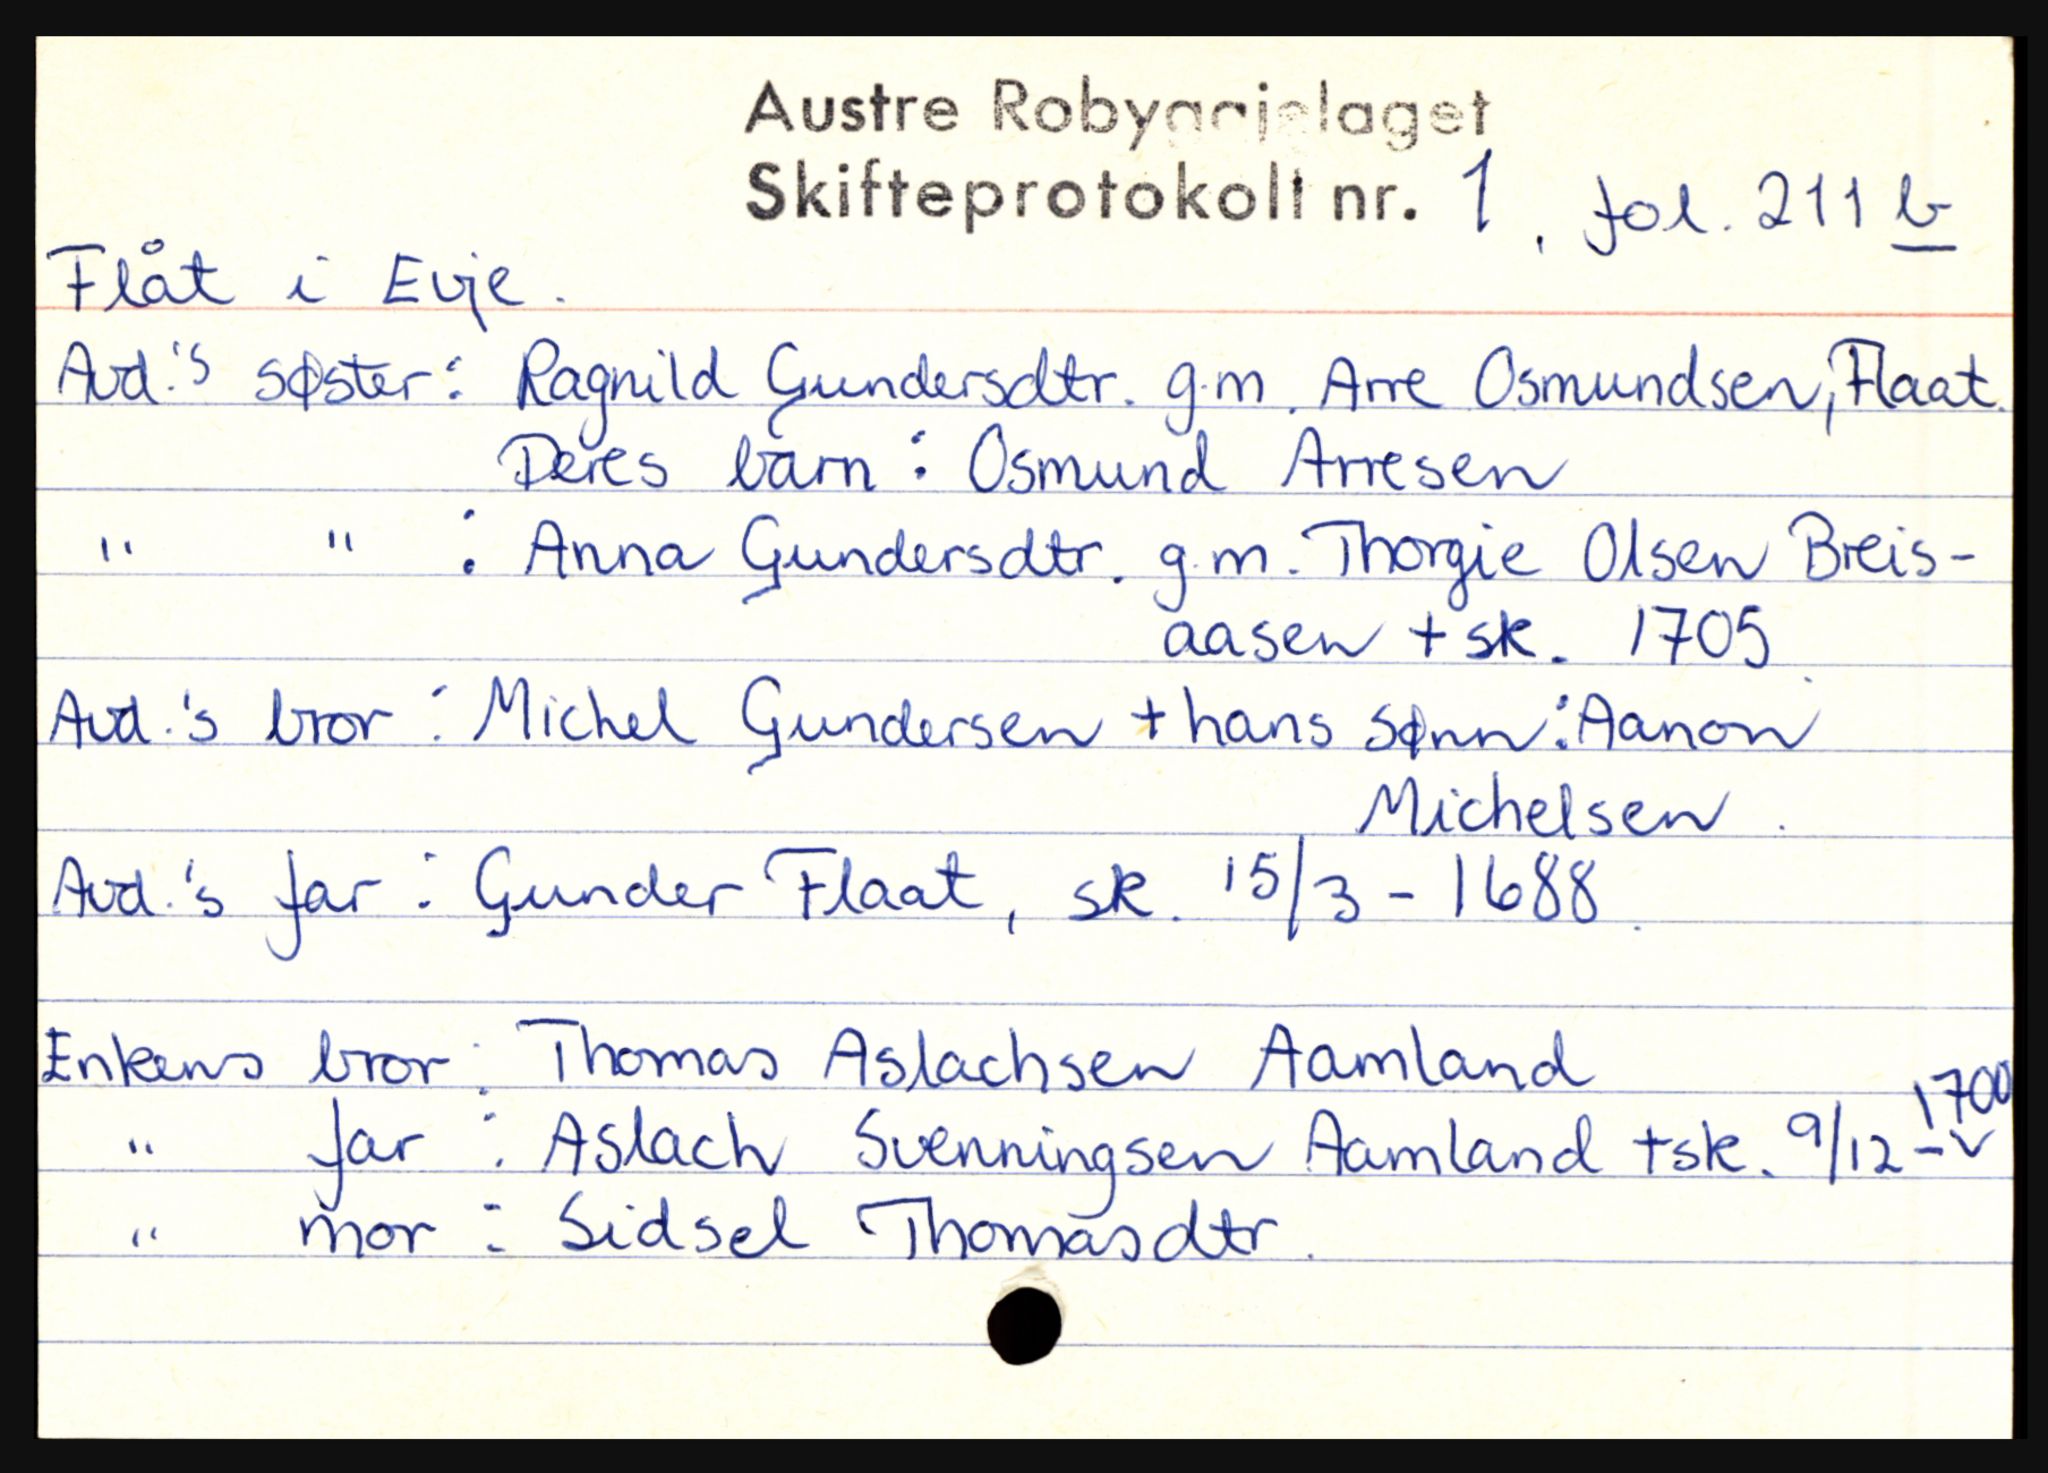 Austre Robyggjelaget
Skifteprotokoll nr. 1, fol. 211 b
Flåt i Evje.
Avd.'s søster: Ragnild Gundersdtr. g.m. Arre Osmundsen, Flaat.
Deres barn: Osmund Arresen
" " : Anna Gundersdtr. g.m. Thorgie Olsen Breis-
aasen + sk. 1705
Avd.'s bror: Michel Gundersen + hans sønn: Aanon
Michelsen.
Avd.'s far: Gunder Flaat, sk. 15/3 - 1688.
Enkens bror: Thomas Aslachsen Aamland
" far: Aslach Svenningsen Aamland + sk. 9/12 - 1700
" mor: Sidsel Thomasdtr.